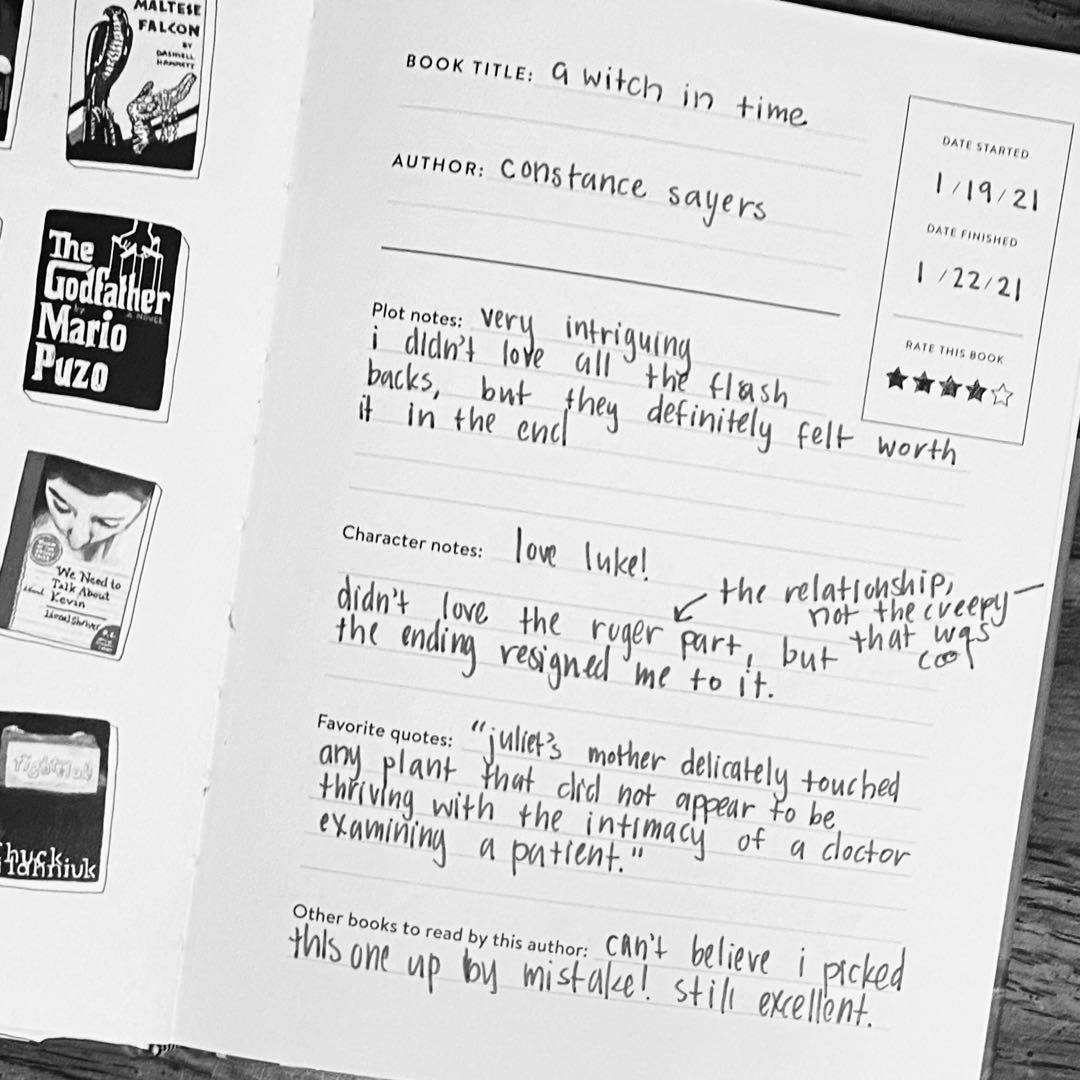 MALTESE
FALCON
BY
DASHIELL
HAMMETT
The
Godfather
by
A NOVEL
Mario
Puzo
We Need to
Talk About
Kevin
Lionel Shriver
BOOK TITLE: a witch in time
AUTHOR: constance sayers
DATE STARTED
1/19/21
DATE FINISHED
1/22/21
RATE THIS BOOK
Plot notes: very intriguing
i didn't love all the flash
backs, but they definitely felt worth
it in the end
Character notes: love luke!
the relationship,
not the creepy
that was
cool
didn't love the ruger part, but
the ending resigned me to it.
Favorite quotes: "juliet's mother delicately touched
any plant that did not appear to be
thriving with the intimacy of a doctor
examining a patient."
Other books to read by this author: can't believe i picked
this one up by mistake! still excellent.